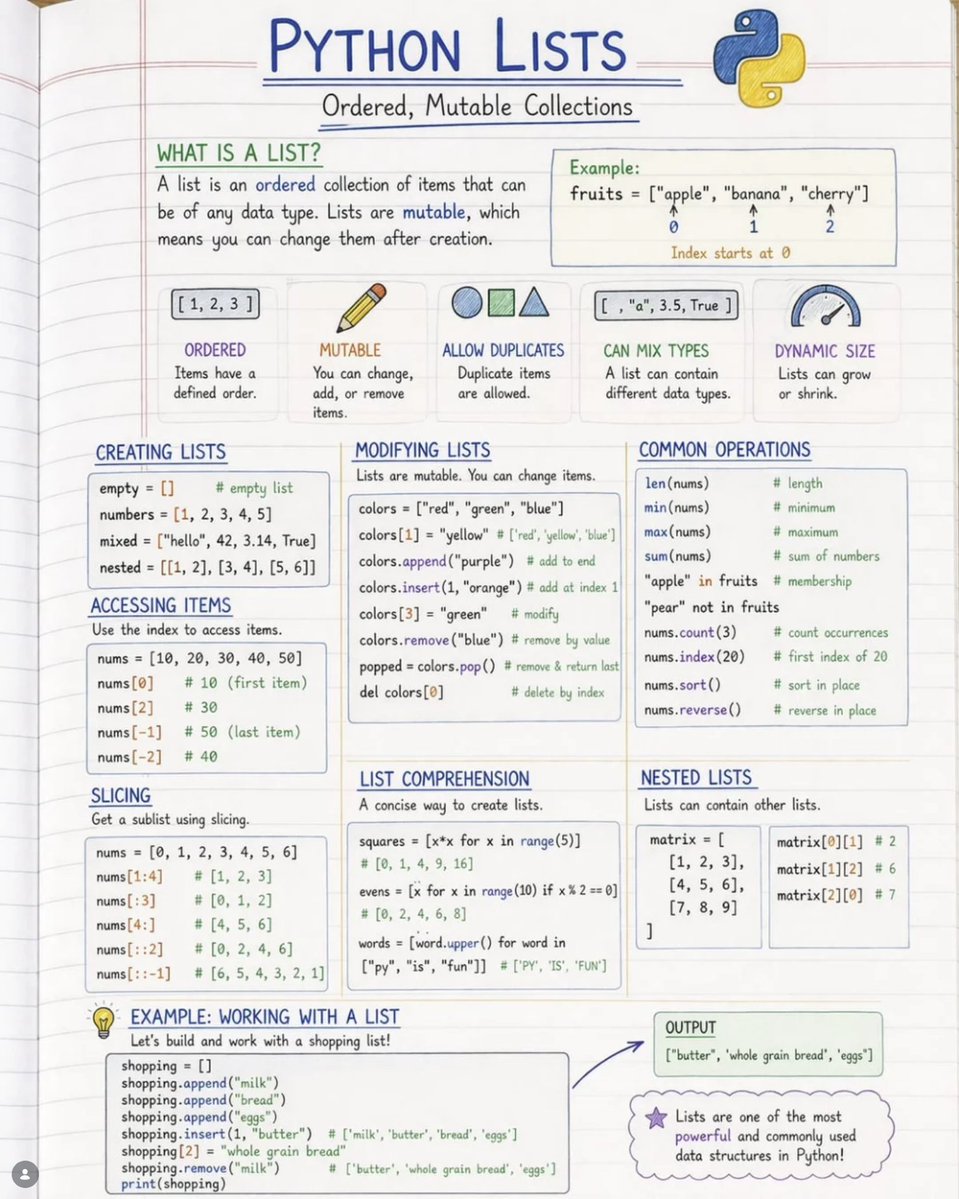 PYTHON LISTS
Ordered, Mutable Collections
WHAT IS A LIST?
A list is an ordered collection of items that can
be of any data type. Lists are mutable, which
means you can change them after creation.
Example:
fruits = ["apple", "banana", "cherry"]
0 1 2
Index starts at 0
[ 1, 2, 3 ]
ORDERED
Items have a
defined order.
MUTABLE
You can change,
add, or remove
items.
ALLOW DUPLICATES
Duplicate items
are allowed.
[ , "a", 3.5, True ]
CAN MIX TYPES
A list can contain
different data types.
DYNAMIC SIZE
Lists can grow
or shrink.
CREATING LISTS
empty = [] # empty list
numbers = [1, 2, 3, 4, 5]
mixed = ["hello", 42, 3.14, True]
nested = [[1, 2], [3, 4], [5, 6]]
ACCESSING ITEMS
Use the index to access items.
nums = [10, 20, 30, 40, 50]
nums[0] # 10 (first item)
nums[2] # 30
nums[-1] # 50 (last item)
nums[-2] # 40
SLICING
Get a sublist using slicing.
nums = [0, 1, 2, 3, 4, 5, 6]
nums[1:4] # [1, 2, 3]
nums[:3] # [0, 1, 2]
nums[4:] # [4, 5, 6]
nums[::2] # [0, 2, 4, 6]
nums[::-1] # [6, 5, 4, 3, 2, 1]
MODIFYING LISTS
Lists are mutable. You can change items.
colors = ["red", "green", "blue"]
colors[1] = "yellow" # ['red', 'yellow', 'blue']
colors.append("purple") # add to end
colors.insert(1, "orange") # add at index 1
colors[3] = "green" # modify
colors.remove("blue") # remove by value
popped = colors.pop() # remove & return last
del colors[0] # delete by index
LIST COMPREHENSION
A concise way to create lists.
squares = [x*x for x in range(5)]
# [0, 1, 4, 9, 16]
evens = [x for x in range(10) if x % 2 == 0]
# [0, 2, 4, 6, 8]
words = [word.upper() for word in
["py", "is", "fun"]] # ['PY', 'IS', 'FUN']
COMMON OPERATIONS
len(nums) # length
min(nums) # minimum
max(nums) # maximum
sum(nums) # sum of numbers
"apple" in fruits # membership
"pear" not in fruits
nums.count(3) # count occurrences
nums.index(20) # first index of 20
nums.sort() # sort in place
nums.reverse() # reverse in place
NESTED LISTS
Lists can contain other lists.
matrix = [
[1, 2, 3],
[4, 5, 6],
[7, 8, 9]
]
matrix[0][1] # 2
matrix[1][2] # 6
matrix[2][0] # 7
EXAMPLE: WORKING WITH A LIST
Let's build and work with a shopping list!
shopping = []
shopping.append("milk")
shopping.append("bread")
shopping.append("eggs")
shopping.insert(1, "butter") # ['milk', 'butter', 'bread', 'eggs']
shopping[2] = "whole grain bread"
shopping.remove("milk") # ['butter', 'whole grain bread', 'eggs']
print(shopping)
OUTPUT
["butter", 'whole grain bread', 'eggs"]
Lists are one of the most
powerful and commonly used
data structures in Python!